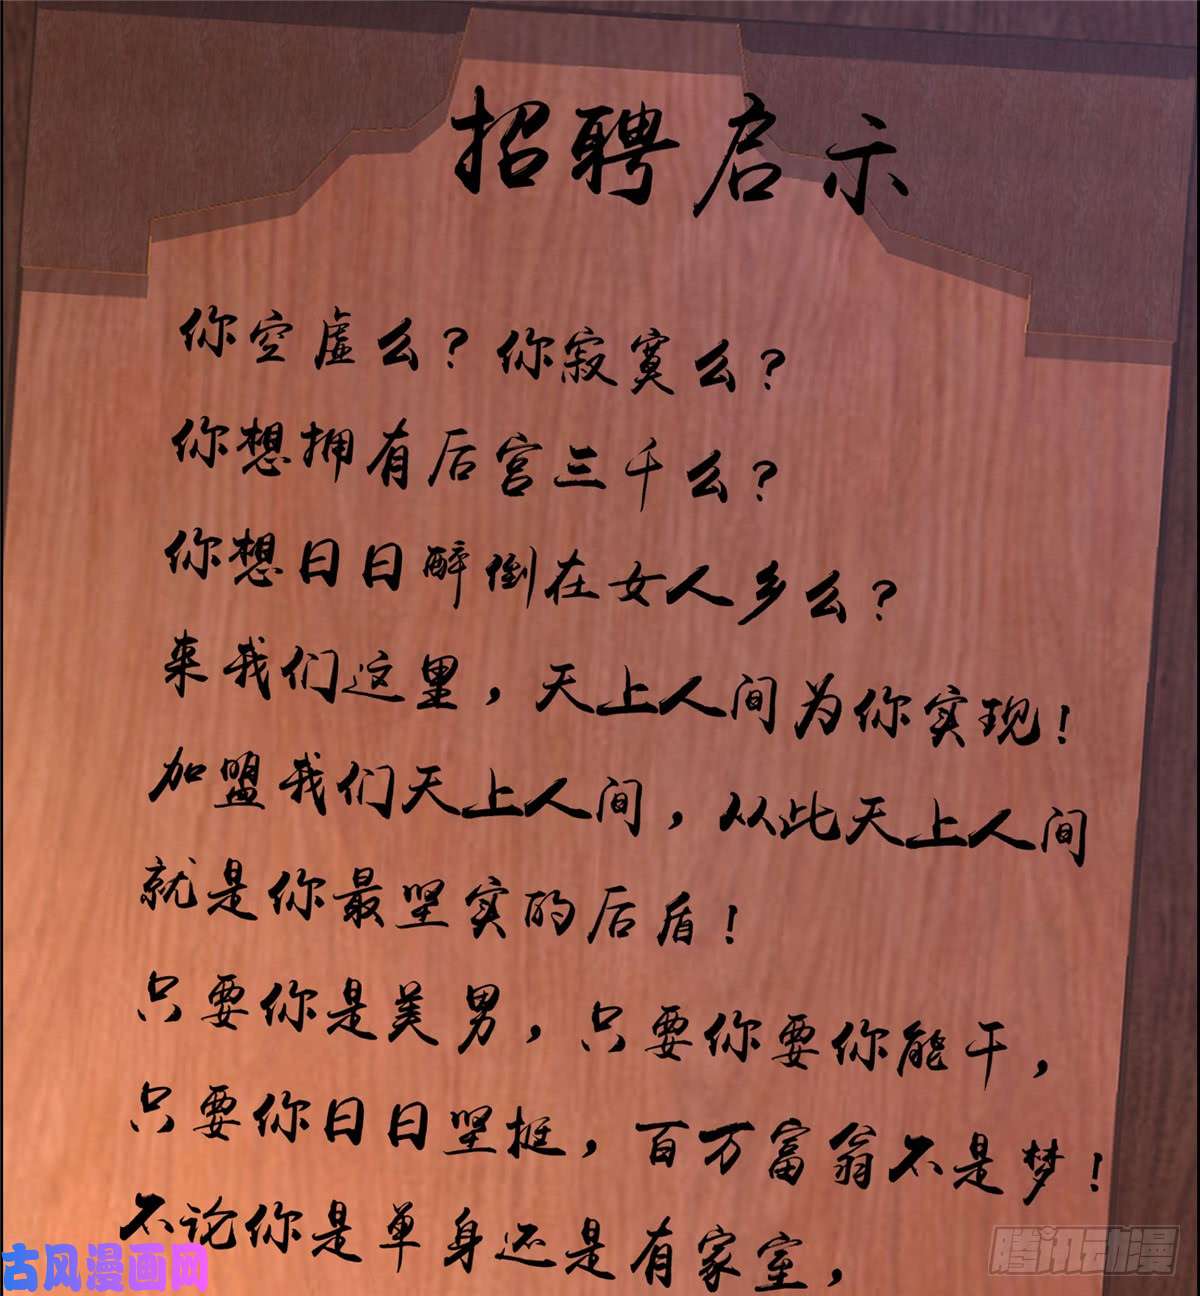 招聘启示
你空虚么？你寂寞么？
你想拥有后宫三千么？
你想日日醉倒在女人乡么？
来我们这里，天上人间为你实现！
加盟我们天上人间，从此天上人间
就是你最坚实的后盾！
只要你是美男，只要你要你能干，
只要你日日坚挺，百万富翁不是梦！
不论你是单身还是有家室，
古风漫画网
腾讯动漫